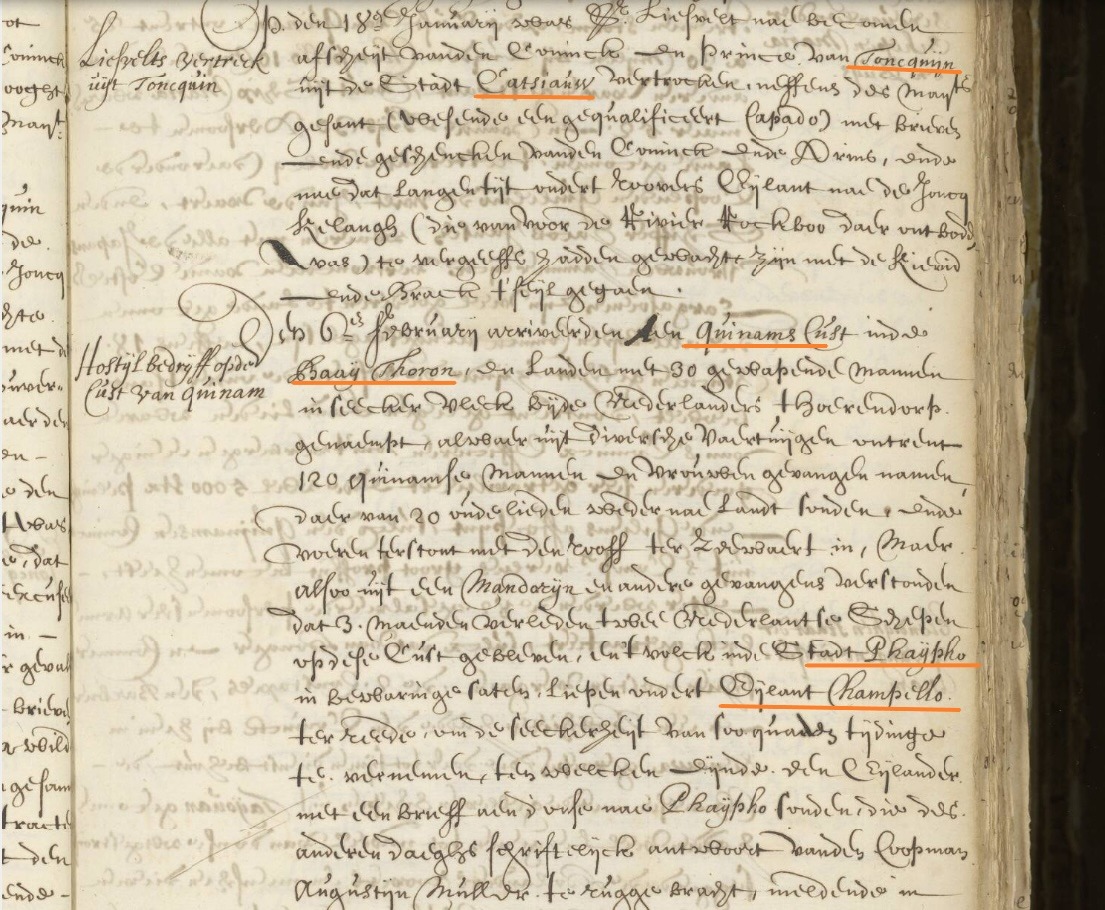 Liesvelts vertreck
uijt Toncquin
Op den 18en Januarij was Sr. Liesvelt nae becomen
affscheijt vanden Coninck en Prince van Toncquijn
uijt de Stadt Catsiauw vertrocken, neffens des Mayts
gesant (wesende een gequalificeert Capado) met brieven
ende geschencken vanden Coninck ende Prins, ende
nae dat langen tijt ondert Roovers Eijlant nae de Joncq
Kelangh (die van voor de Rivier Rockboo daer ontboden
was) te vergeeffs hadden gewacht, zijn met de Kievid
ende Brack t'seijl gegaen.
Hostijl bedrijff op de
Cust van Quinam
Den 6en Februarij arriveerden aen Quinams Cust inde
Baaij Thoron, en landen met 30 gewapende mannen
in seecker vleck bijde Nederlanders t'Hoerendorp
genaempt, alwaer uijt diversche vaertuijgen ontrent
120 quinamse mannen en vrouwen gevangen namen,
daer van 20 oude lieden weder nae landt sonden, ende
voeren terstont met den rooff ter zeewaert in, Maer
alsoo uijt een Mandorijn en andere gevangens verstonden
dat 3. maenden verleden twee Nederlantse Schepen
op dese Cust gebleven, en t volck inde Stadt Phaijpho
in bewaringe saten, liepen ondert Eijlant Champello
ter reede, om de seeckerheijt van soo quaden tijdinge
te vernemen, ten welcken eijnde den Eijlander
met een brieff aen d'onse nae Phaijpho sonden, die des
anderen daeghs schriftelijck antwoort vanden Coopman
Augustijn Muller te rugge bracht, meldende in